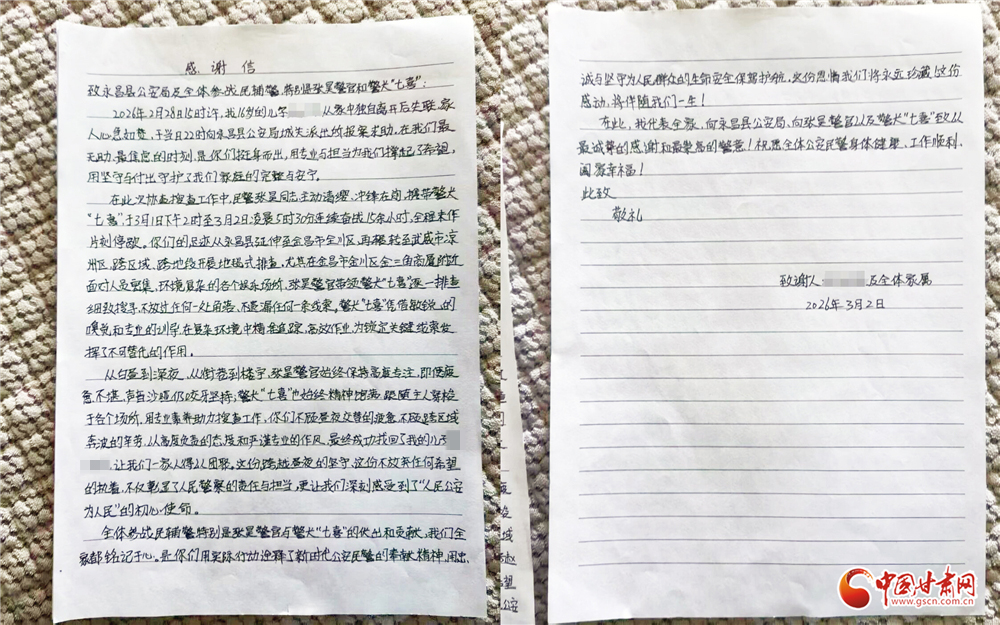 感谢信
致永昌县公安局及全体参战民辅警,特别是张昊警官和警犬“七喜”:
2026年2月28日15时许,我16岁的儿子 从家中独自离开后失联,家
人心急如焚,于当日22时向永昌县公安局城关派出所报案求助,在我们最
无助、最焦急的时刻,是你们挺身而出,用专业与担当为我们撑起了希望,
用坚守与付出守护了我们家庭的完整与安宁。
在此次协查搜查工作中,民警张昊同志主动请缨、冲锋在前,携带警犬
“七喜”,于3月1日下午2时至3月2日凌晨5时30分连续奋战15个小时,全程未作
片刻停歇。你们的足迹从永昌县延伸至金昌市金川区,再辗转至武威市凉
州区,跨区域、跨地段开展地毯式排查,尤其在金昌市金川区金三角商厦附近
面对人员密集、环境复杂的各个娱乐场所,张昊警官带领警犬“七喜”逐一排查
细致搜寻,不放过任何一处角落、不遗漏任何一条线索。警犬“七喜”凭借敏锐的
嗅觉和专业的训导,在复杂环境中精准追踪、高效作业,为锁定关键线索发
挥了不可替代的作用。
从白昼到深夜,从街巷到楼宇,张昊警官始终保持高度专注,即便疲
惫不堪,声音沙哑仍咬牙坚持;警犬“七喜”也始终精神饱满,跟随主人穿梭
于各个场所,用专业素养助力搜查工作,你们不顾昼夜交替的疲惫,不顾跨区域
奔波的辛劳,以高度负责的态度和严谨专业的作风,最终成功找回了我的儿子
,让我们一家人得以团聚。这份跨越昼夜的坚守,这份不放弃任何希望
的执着,不仅彰显了人民警察的责任与担当,更让我们深刻感受到了“人民公安
为人民”的初心使命。
全体参战民辅警特别是张昊警官与警犬“七喜”的付出和贡献,我们全
家都铭记于心。是你们用实际行动诠释了新时代公安民警的奉献精神,用忠
诚与坚守为人民群众的生命安全保驾护航,这份恩情我们将永远珍藏,这份
感动,将伴随我们一生!
在此,我代表全家,向永昌县公安局、向张昊警官以及警犬“七喜”致以
最诚挚的感谢和最崇高的敬意!祝愿全体公安民警身体健康、工作顺利、
阖家幸福!
此致
敬礼
致谢人: 及全体家属
2026年3月2日
中国甘肃网
www.gscn.com.cn